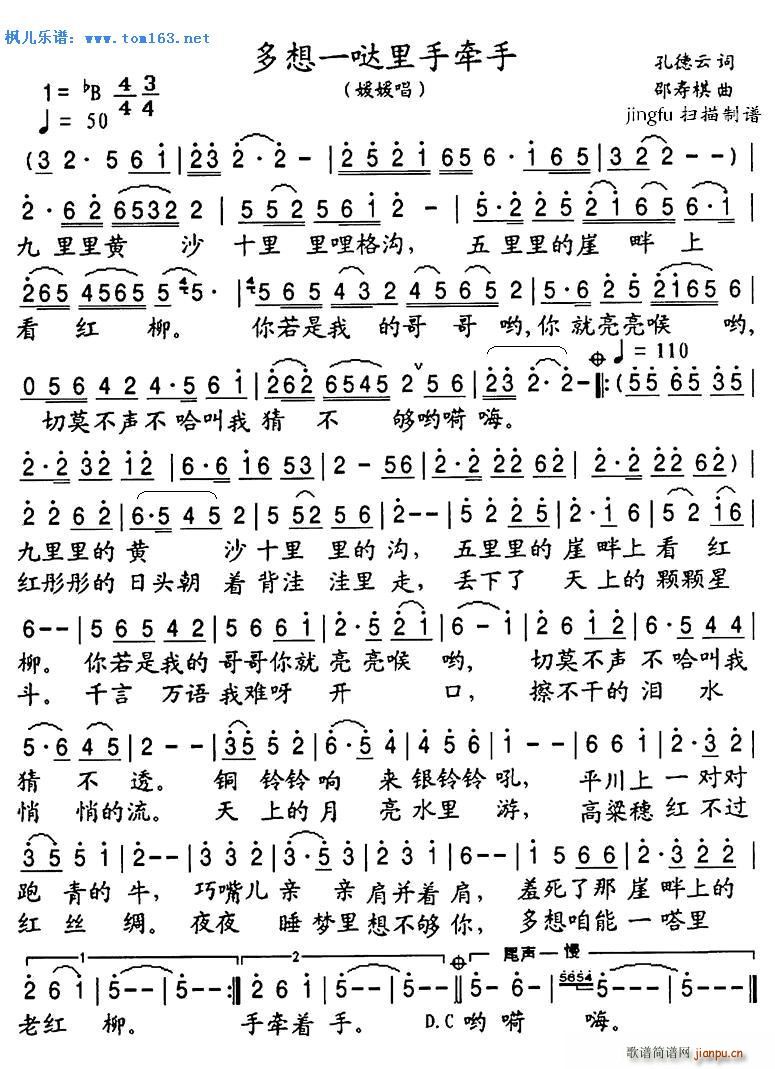 枫儿乐谱：www.tom163.net
多想一哒里手牵手
（媛媛唱）
孔德云 词
邵寿棋 曲
jingfu 扫描制谱
1= ♭B 4/4 3/4
♩= 50
(3 2· 5 6 1 | 2 3 2· 2 - | 2 5 2 1 6 5 6· 1 6 5 | 3 2 2 - - ) |
2· 6 2 6532 2 | 5 5 2 5 6 1 2 - | 5· 2 2 5 2 1 6 5 6· 1 |
九 里里黄 沙 十里 里哩格沟， 五 里里的崖 畔 上
265 4565 5 5· | 5 6 5 4 3 2 4 5 6 5 2 | 5· 6 2 5 2165 6 |
看 红 柳。 你若是我 的哥 哥 哟,你 就亮亮喉 哟,
0 5 6 4 2 4· 5 6 1 | 2 6 2 6545 2 5 6 | 2 3 2· 2 - :(5 5 6 5 3 5 |
♩= 110
切莫不声不哈叫我 猜 不 够哟嗬 嗨。
2· 2 3 2 1 2 | 6· 6 1 6 5 3 | 2 - 5 6 | 2· 2 2 2 6 2 | 2· 2 2 2 6 2 ) |
2 2 6 2 | 6· 5 4 5 2 | 5 5 2 5 6 | 2 - - | 2 2 6 2 | 6· 5 6 | 5 2 1 6 |
九里里的 黄 沙十里 里的沟， 五里里的 崖畔上看 红
红彤彤的 日头朝 着背洼 洼里 走， 丢下了 天上的 颗颗星
6 - - | 5 6 5 4 2 | 5 6 6 1 | 2· 5 2 1 | 6 - 1 | 2 6 1 2 | 6· 5 4 4 |
柳。 你若是我的 哥哥你就 亮 亮喉 哟， 切莫不声 不哈叫我
斗。 千言 万语我难呀 开 口， 擦不干的 泪 水
5· 6 4 5 | 2 - - | 3 5 5 2 | 6· 5 | 4 5 6 2 | 1 - - | 6 6 1 | 2· 3 2 |
猜 不 透。 铜 铃铃 响 来 银铃铃 吼， 平川上 一对对
悄 悄的流。 天 上的 月 亮水里 游， 高粱穗 红 不过
3 5 5 1 | 2 - - | 3 3 2 | 3· 5 3 | 2 3 1 | 6 - - | 1 5 6 6 | 3· 2 2 2 |
跑 青的 牛， 巧嘴儿 亲 亲 肩并着 肩， 羞死了那 崖畔上的
红 丝 绸。 夜夜 睡 梦里 想不够 你， 多想咱能 一嗒里
1 2 尾声—慢
2 6 1 | 5 - - | 5 - - :| 2 6 1 | 5 - - | 5 - - | 5 - 6 - 5654 | 5 - - | 5 - - |
老红 柳。 手牵着 手。 D.C 哟嗬 嗨。
歌谱简谱网
jianpu.cn